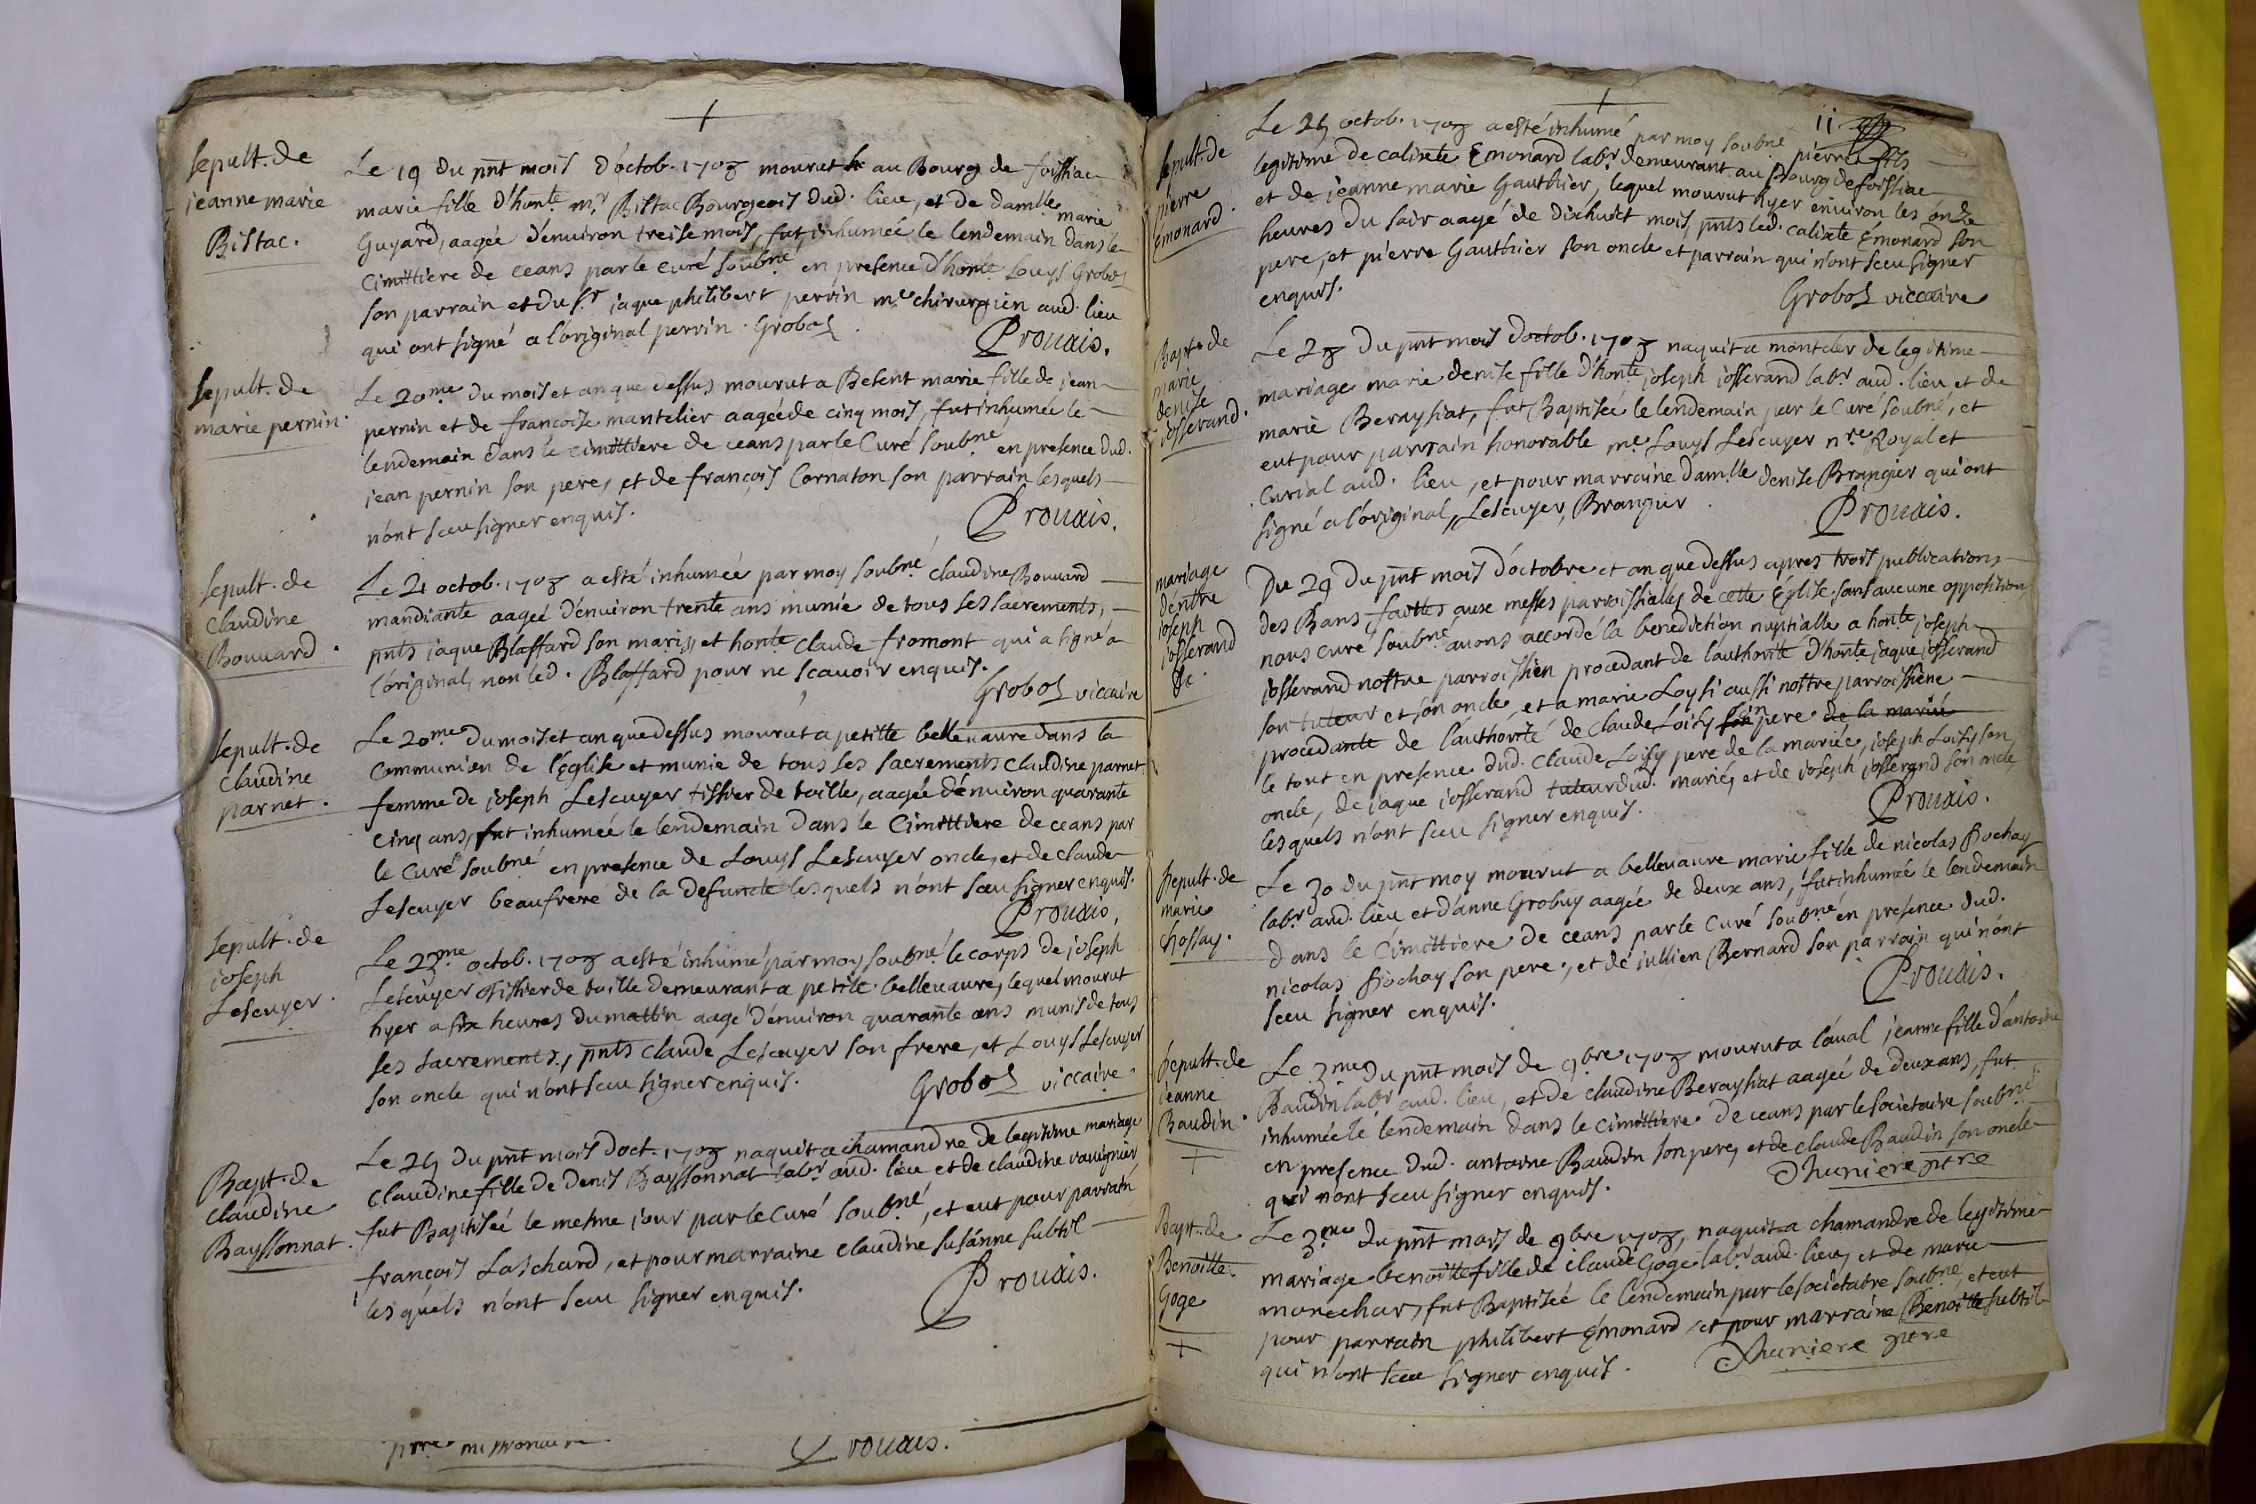 Sepult. de
jeanne marie
Bistac.
Le 19 du pnt mois d'octob. 1708 mourut au Bourg de foissiac
marie fille d'honte mr Bistac Bourgeois dud. lieu, et de damlle marie
Guyard, aagée d'enuiron treise mois, fut inhumée le lendemain dans le
Cimittiere de ceans par le curé soubné en presence d'honte Louys Grobos
son parrain et du sr jaque philibert perrin me chirurgien aud. lieu
qui ont signé a l'original perrin. Grobos.
Prouais.
Sepult. de
marie pernin.
Le 20me du mois et an que dessus mourut a Besent marie fille de jean
pernin et de francoise mantelier aagée de cinq mois, fut inhumée le
lendemain dans le cimittiere de ceans par le Curé soubné en presence dud.
jean pernin son pere, et de françois Cornaton son parrain lesquels
n'ont sceu signer enquis.
Prouais.
Sepult. de
claudine
Bouuard.
Le 21 octob. 1708 a esté inhumée par moy soubné claudine Bouuard
mandiante aageé d'enuiron trente ans munie de tous ses sacrements,
pnts jaque Blaffard son mary, et honte claude fromont qui a signé a
l'original, non led. Blaffard pour ne scauoir enquis.
Grobos viccaire
Sepult. de
claudine
parnet.
Le 20me du mois et an que dessus mourut a petitte belleuaure dans la
communion de l'Eglise et munie de tous ses sacrements claudine parnet
femme de joseph Lescuyer tissier de toille, aagée d'enuiron quarante
cinq ans, fut inhumée le lendemain dans le Cimittiere de ceans par
le Curé soubné en presence de Louys Lescuyer oncle, et de claude
Lescuyer beaufrere de la defuncte lesquels n'ont sceu signer enquis.
Prouais,
Sepult. de
joseph
Lescuyer.
Le 23me octob. 1708 a esté inhumé par moy soubné le corps de joseph
Lescuyer tissier de toille demeurant a petite belleuaure, lequel mourut
hyer a six heures du mattin aagé d'enuiron quarante ans munis de tous
ses sacrements, pnts claude Lescuyer son frere, et Louys Lescuyer
son oncle qui n'ont sceu signer enquis.
Grobos viccaire.
Bapt. de
claudine
Bayssonnat.
Le 24 du pnt mois d'oct. 1708 naquit a chamandre de legitime mariage
claudine fille de denis Bayssonnat labr aud. lieu et de claudine rauignier
fut Baptisée le mesme jour par le Curé soubné, et eut pour parrain
françois Laschard, et pour marraine claudine susanne subtil
lesquels n'ont sceu signer enquis.
Prouais.
missionaire
Prouais.
11
Sepult. de
pierre
emonard.
Le 24 octob. 1708 a esté inhumé par moy soubné pierre fils
legitime de calixte Emonard labr demeurant au Bourg de foissiac
et de jeanne marie Gauthier, lequel mourut hyer enuiron les onze
heures du soir aagé de dixhuict mois, pnts led. calixte Emonard son
pere, et pierre Gauthier son oncle et parrain qui n'ont sceu signer
enquis.
Grobos viccaire
Bapt. de
marie
denise
josserand.
Le 28 du pnt mois d'octob. 1708 naquit a montcler de legitime
mariage marie denise fille d'honte joseph josserand labr aud. lieu et de
marie Beraysiat, fut Baptisée le lendemain par le Curé soubné, et
eut pour parrain honorable me Louys Lescuyer nre Royal et
Curial aud. lieu, et pour marraine damlle denise Brangier qui ont
signé a l'original, Lescuyer, Brangier.
Prouais.
mariage
d'entre
joseph
josserand
&c.
Du 29 du pnt mois d'octobre et an que dessus apres trois publications
des Bans faittes aux messes parroissialles de cette Eglise sans aucune opposition
nous curé soubné auons accordé la benediction nuptialle a honte joseph
josserand nottre parroissien procedant de l'authorité d'honte jaque josserand
son tuteur et son oncle, et a marie Loysi aussi nottre parroissiene
procedante de l'authorité de claude Loisy son pere de la mariée
le tout en presence dud. claude Loisy pere de la mariée, joseph Loisy son
oncle, de jaque josserand tuteur dud. marié, et de joseph josserand son oncle,
lesquels n'ont sceu signer enquis.
Prouais.
Sepult. de
marie
chossay.
Le 30 du pnt moy mourut a belleuaure marie fille de nicolas Bochay
labr aud. lieu et d'anne Grobuy aagée de deux ans, fut inhumée le lendemain
dans le Cimittiere de ceans par le curé soubné en presence dud.
nicolas Bochay son pere, et de jullien Bernard son parrain qui n'ont
sceu signer enquis.
Prouais.
Sepult. de
jeanne
Baudin.
Le 3me du pnt mois de 9bre 1708 mourut a laual jeanne fille d'antoine
Baudin labr aud. lieu, et de claudine Beraysiat aageé de deux ans, fut
inhumée le lendemain dans le cimittiere de ceans par le societaire soubné
en presence dud. antoine Baudin son pere, et de claude Baudin son oncle
qui n'ont sceu signer enquis.
Thuniere ptre
Bapt. de
Benoitte
Goge
Le 3me du pnt mois de 9bre 1708, naquit a chamandre de legitime
mariage benoitte fille de claude Goge labr aud. lieu, et de marie
marechar, fut Baptisée le lendemain par le societaire soubné, et eut
pour parrain philibert Emonard, et pour marraine Benoitte subtil
qui n'ont sceu signer enquis.
Thuniere ptre